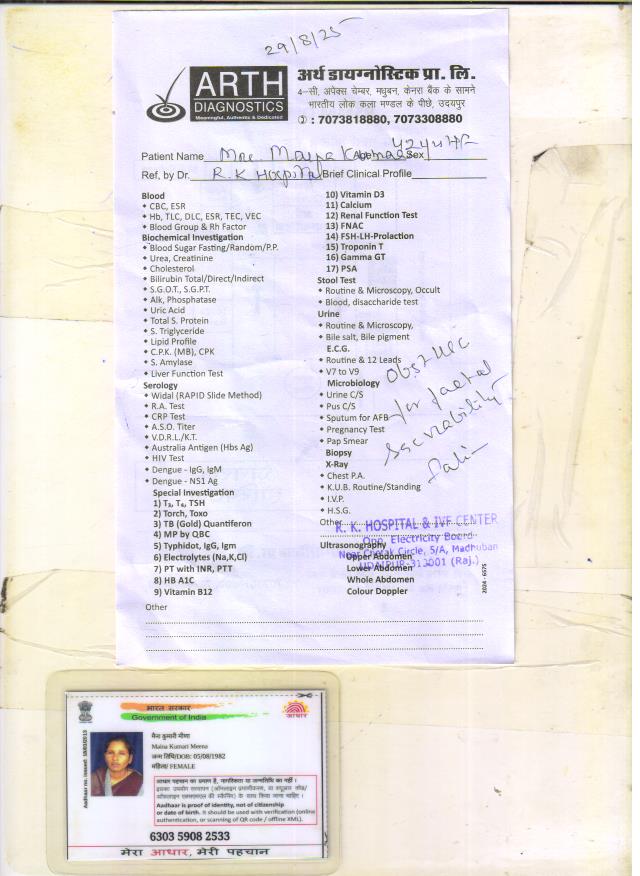 29/8/25
ARTH
DIAGNOSTICS
Meaningful, Authentic & Dedicated
अर्थ डायग्नोस्टिक प्रा. लि.
4-सी, अपेक्स चेम्बर, मधुबन, केनरा बैंक के सामने
भारतीय लोक कला मण्डल के पीछे, उदयपुर
: 7073818880, 7073308880
Patient Name Mrs. Age Sex
Ref, by Dr. R.K Hospital Brief Clinical Profile
Blood
CBC, ESR
Hb, TLC, DLC, ESR, TEC, VEC
Blood Group & Rh Factor
Biochemical Investigation
Blood Sugar Fasting/Random/P.P.
Urea, Creatinine
Cholesterol
Bilirubin Total/Direct/Indirect
S.G.O.T., S.G.P.T.
Alk, Phosphatase
Uric Acid
Total S. Protein
S. Triglyceride
Lipid Profile
C.P.K. (MB), CPK
S. Amylase
Liver Function Test
Serology
Widal (RAPID Slide Method)
R.A. Test
CRP Test
A.S.O. Titer
V.D.R.L./K.T.
Australia Antigen (Hbs Ag)
HIV Test
Dengue - IgG, IgM
Dengue - NS1 Ag
Special Investigation
1) T₃, T₄, TSH
2) Torch, Toxo
3) TB (Gold) Quantiferon
4) MP by QBC
5) Typhidot, IgG, Igm
6) Electrolytes (Na,K,Cl)
7) PT with INR, PTT
8) HB A1C
9) Vitamin B12
10) Vitamin D3
11) Calcium
12) Renal Function Test
13) FNAC
14) FSH-LH-Prolaction
15) Troponin T
16) Gamma GT
17) PSA
Stool Test
Routine & Microscopy, Occult
Blood, disaccharide test
Urine
Routine & Microscopy,
Bile salt, Bile pigment
E.C.G.
Routine & 12 Leads
V7 to V9
Microbiology
Urine C/S
Pus C/S
Sputum for AFB
Pregnancy Test
Pap Smear
Biopsy
X-Ray
Chest P.A.
K.U.B. Routine/Standing
I.V.P.
H.S.G.
Other
Ultrasonography
Upper Abdomen
Lower Abdomen
Whole Abdomen
Colour Doppler
for
R. K. HOSPITAL & IVF CENTER
Opp. Electricity Board
Near Chetak Circle, 5/A, Madhuban
UDAIPUR-313001 (Raj.)
2024 - 6575
Other
भारत सरकार
Government of India
आधार
मैना कुमारी मीणा
Maina Kumari Meena
जन्म तिथि/DOB: 05/08/1982
महिला/ FEMALE
आधार पहचान का प्रमाण है, नागरिकता या जन्मतिथि का नहीं।
Aadhaar is proof of identity, not of citizenship
or date of birth. It should be used with verification (online
authentication, or scanning of QR code / offline XML).
6303 5908 2533
मेरा आधार, मेरी पहचान